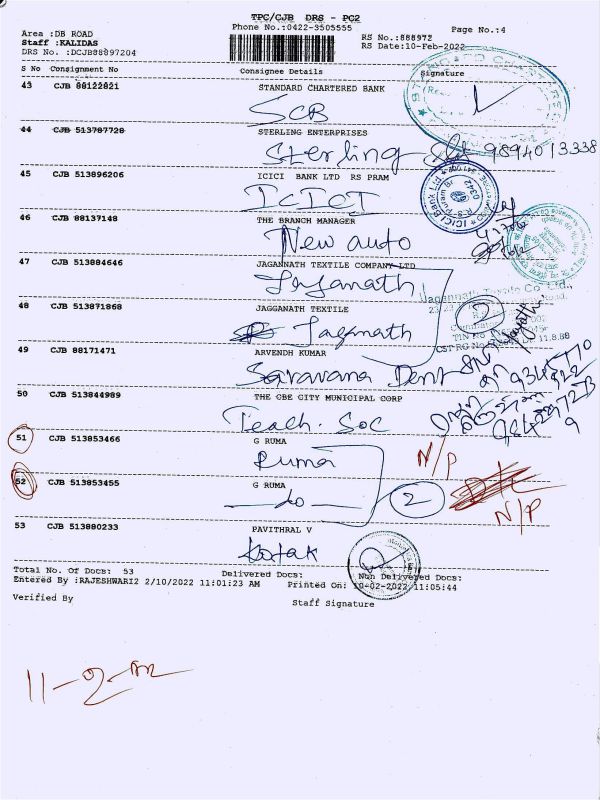 TPC/CJB DRS - PC2
Phone No.:0422-3505555
Page No.:4
Area :DB ROAD
Staff :KALIDAS
DRS No. :DCJB88897204
RS No.:888972
RS Date:10-Feb-2022
S No Consignment No Consignee Details Signature
43 CJB 88122821 STANDARD CHARTERED BANK
SCB
44 CJB 513787728 STERLING ENTERPRISES
Sterling 9894013338
45 CJB 513896206 ICICI BANK LTD RS PRAM
ICICI
46 CJB 88137148 THE BRANCH MANAGER
New auto
47 CJB 513884646 JAGANNATH TEXTILE COMPANY LTD
Jaganath
Jagannath Textile Co. Ltd.,
48 CJB 513871868 JAGGANATH TEXTILE
Jagannath
2
49 CJB 88171471 ARVENDH KUMAR
Saravana Dent
50 CJB 513844989 THE CBE CITY MUNICIPAL CORP
Teach. Soc
51 CJB 513853466 G RUMA
Ruma
N/P
52 CJB 513853455 G RUMA
do
2
N/P
53 CJB 513880233 PAVITHRAL V
Kotak
Total No. Of Docs: 53 Delivered Docs: Non Delivered Docs:
Entered By :RAJESHWARI2 2/10/2022 11:01:23 AM Printed On: 10-02-2022 11:05:44
Verified By Staff Signature
11-2-22